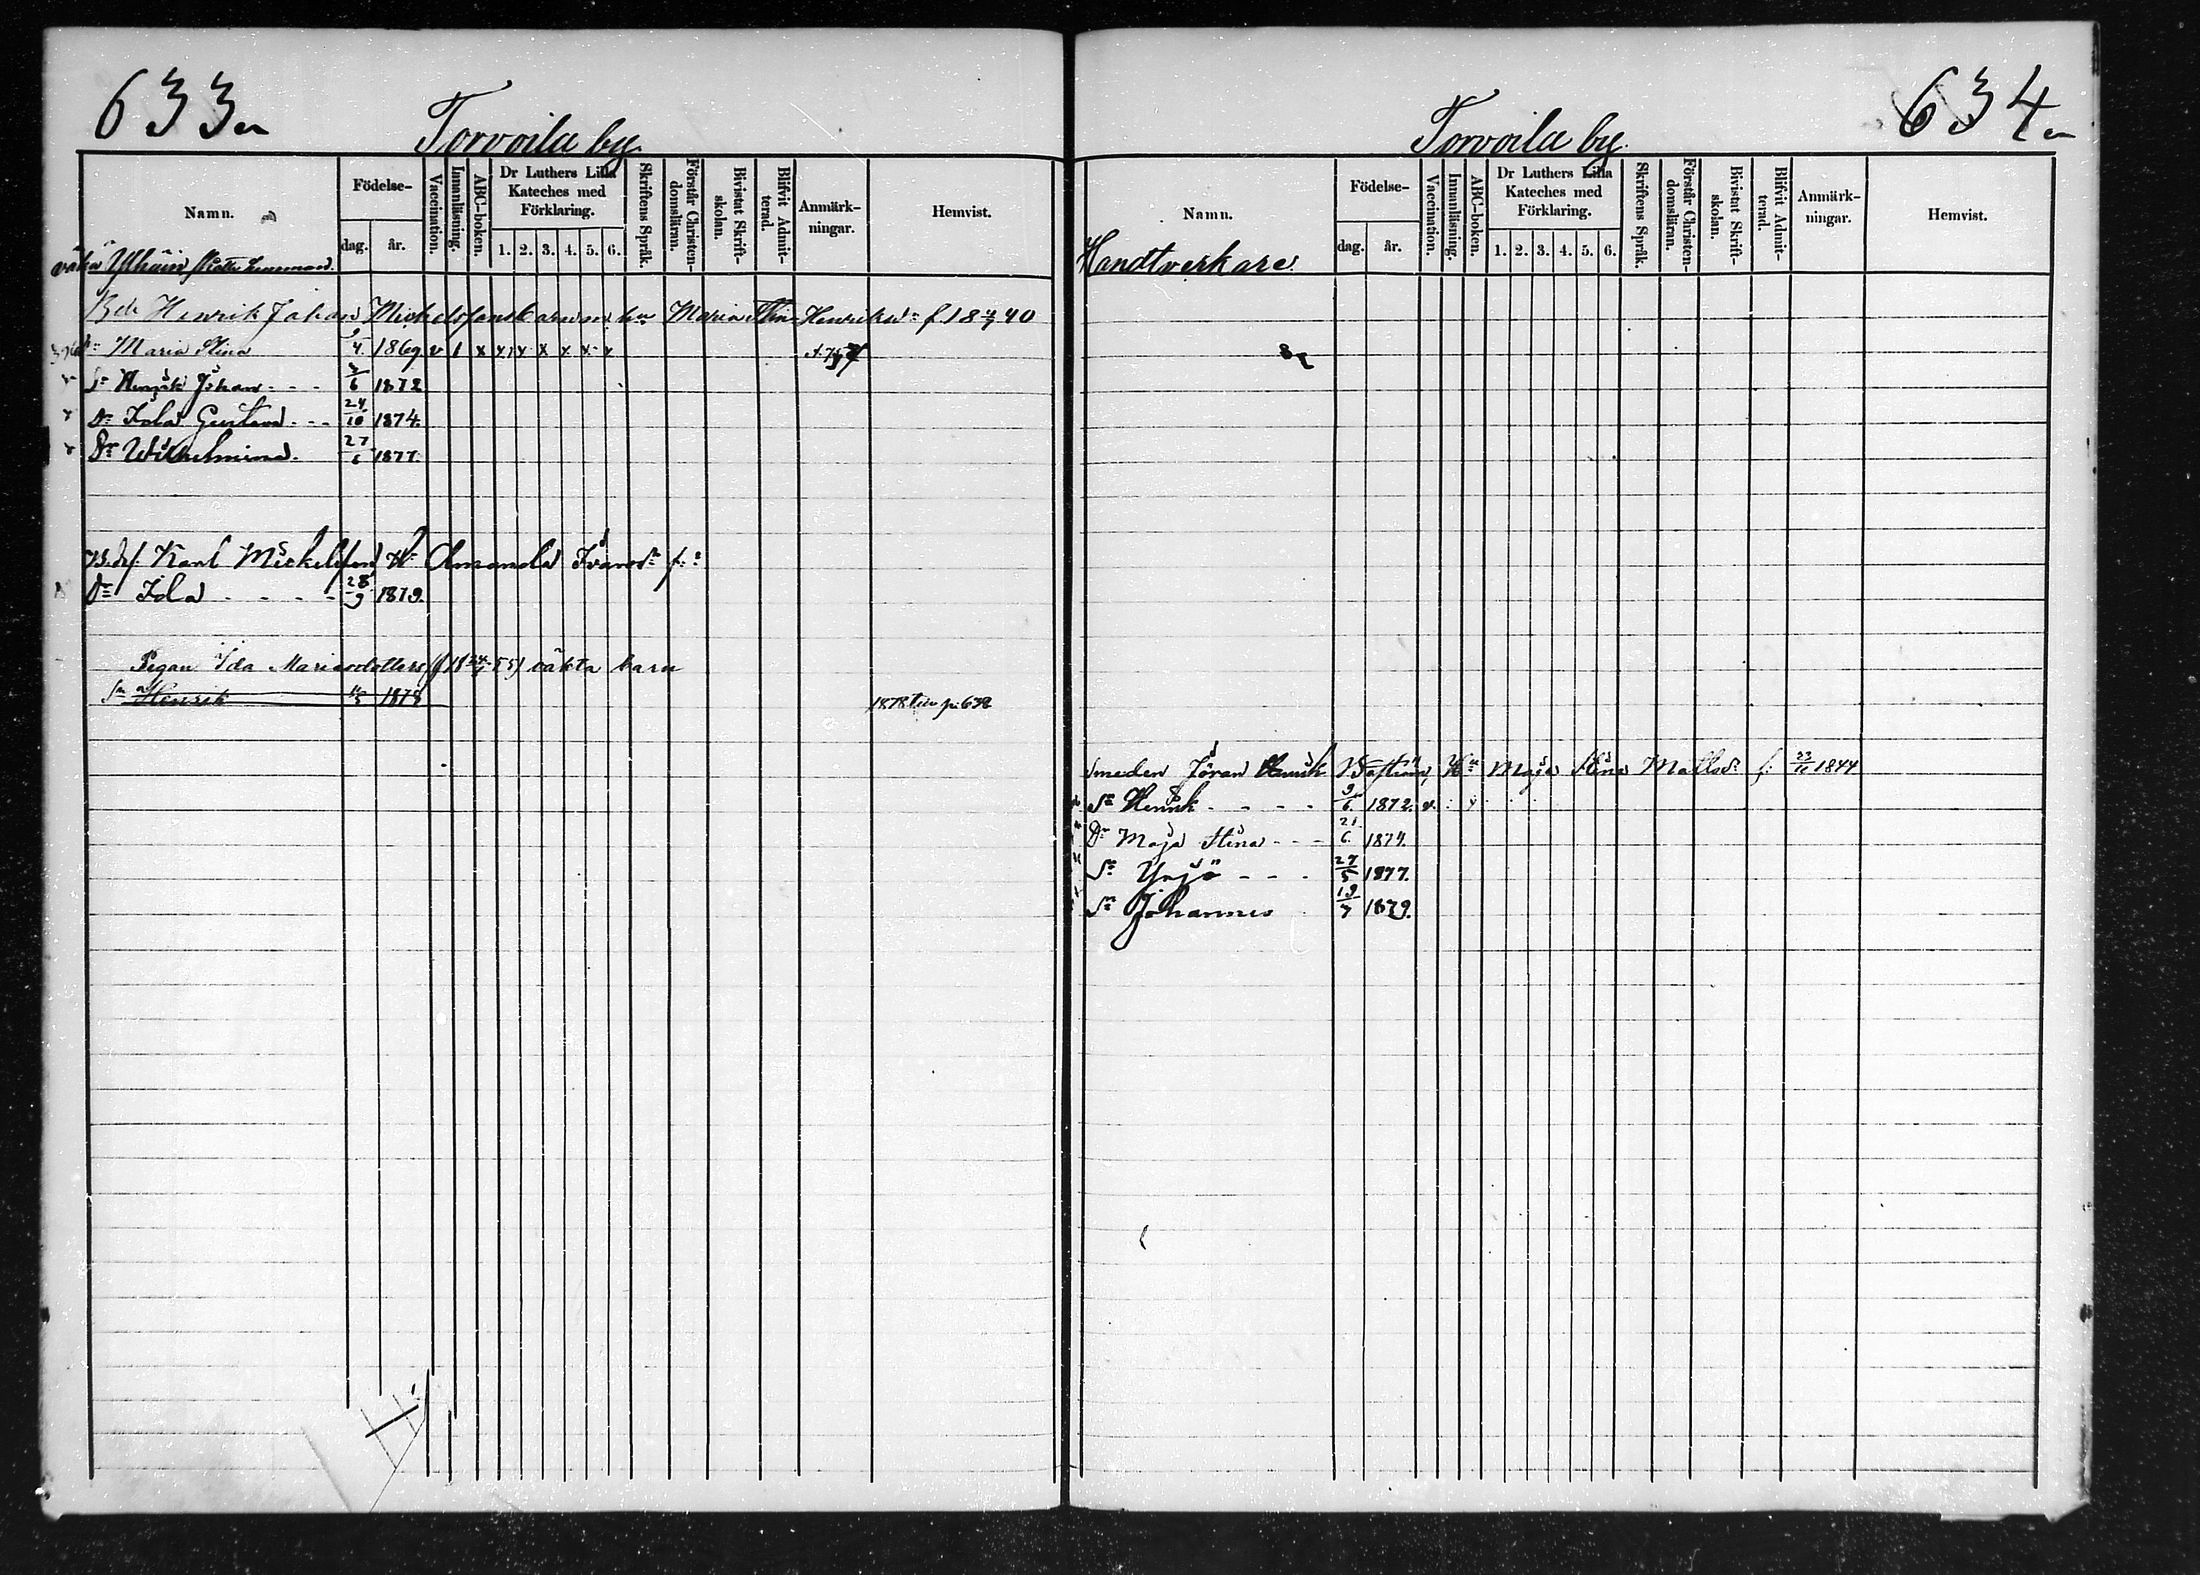 633
Torvoila by.
Namn.
Födelse-
dag.
år.
Vaccination.
Innanläsning.
ABC-boken.
Dr Luthers Lilla
Kateches med
Förklaring.
1. 2. 3. 4. 5. 6.
Skriftens Språk.
Förstår Christen-
domsläran.
Bivistat Skrift-
skolan.
Blifvit Admit-
terad.
Anmärk-
ningar.
Hemvist.
Henrik Johan Mickelssons barn m. hu Maria Stina Henriksdr f 18 40
Maria Stina 4 1869 v 1 x x x x x x x
Sn Henrik Johan - - - 6 1872
Dr Ida Gustava - - - 24/10 1874.
Dr Wilhelmina. 27/6 1877.
Karl Mickelsson H. Amanda Ivarsdr f:
Dr Ida - - - - - 28/9 1879.
Pigan Ida Mariasdotters oäkta barn
Sn Henrik 1878
634
Torvoila by.
Namn.
Födelse-
dag.
år.
Vaccination.
Innanläsning.
ABC-boken.
Dr Luthers Lilla
Kateches med
Förklaring.
1. 2. 3. 4. 5. 6.
Skriftens Språk.
Förstår Christen-
domsläran.
Bivistat Skrift-
skolan.
Blifvit Admit-
terad.
Anmärk-
ningar.
Hemvist.
Handtverkare.
Smeden Jöran Henrik Hu Maja Stina Mattsdr f: 1844
Sn Henrik - - - - 9/6 1872. v.
Dr Maja Stina - - - 21/6 1874.
Sn Yrjö - - - 27/5 1877.
Sn Johannes 19/7 1879.